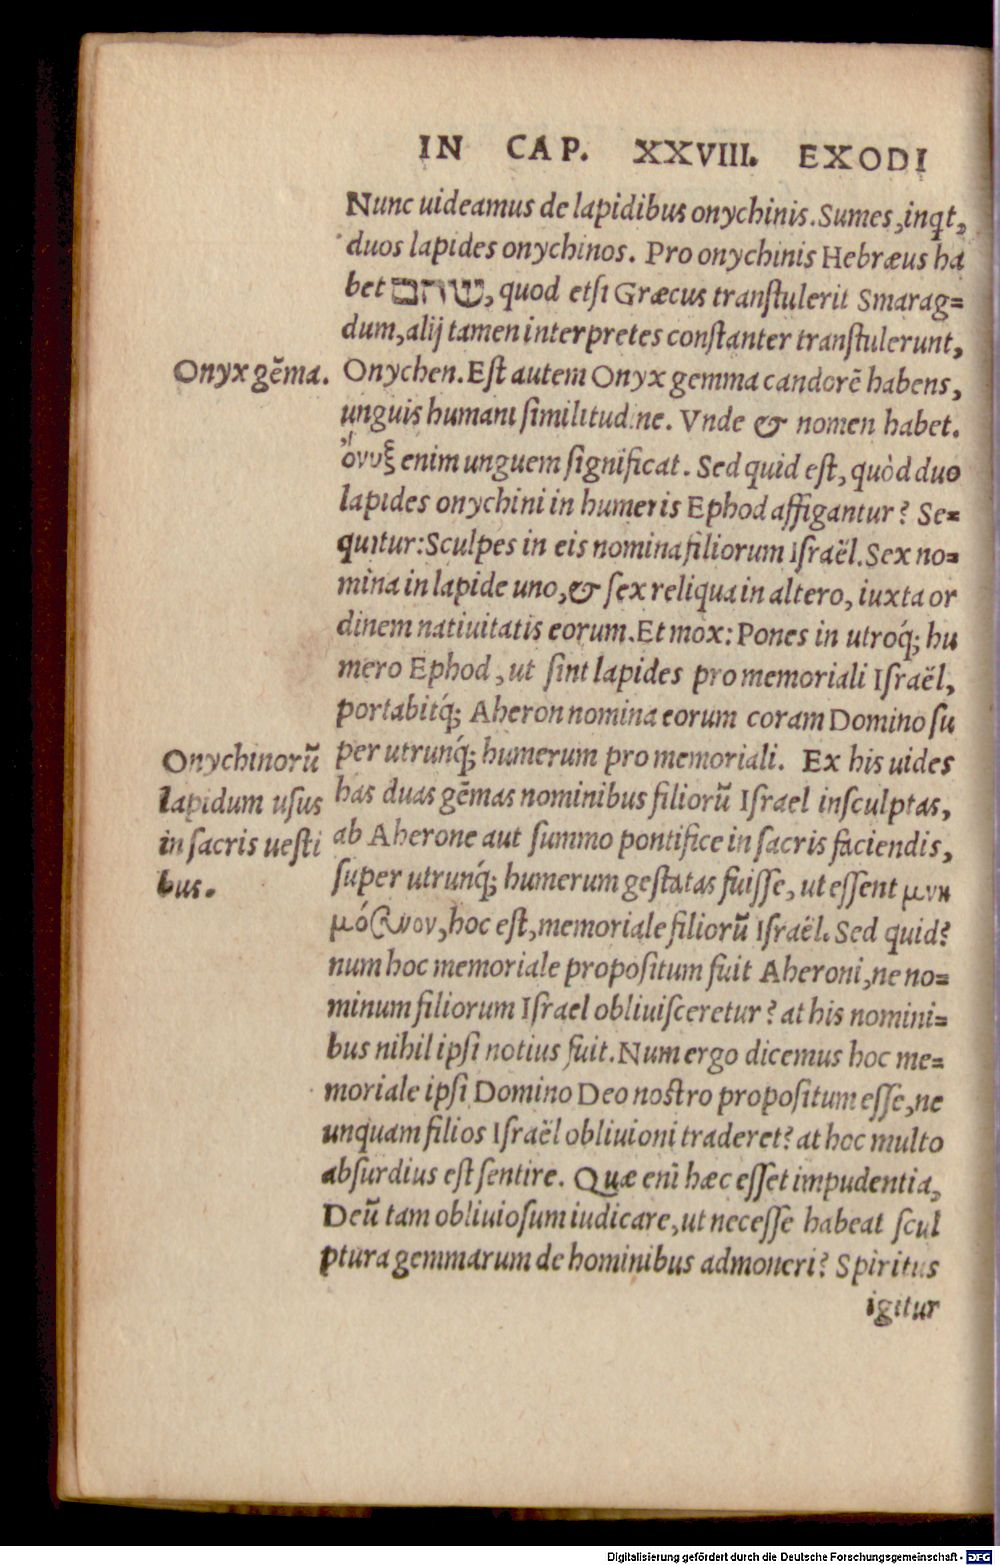 IN CAP. XXVIII. EXODI
Nunc uideamus de lapidibus onychinis. Sumes, inqt,
duos lapides onychinos. Pro onychinis Hebræus ha
bet שהם, quod etſi Græcus tranſtulerit Smarag=
dum, alij tamen interpretes conſtanter tranſtulerunt,
Onyx gẽma.
Onychen. Eſt autem Onyx gemma candorẽ habens,
unguis humani ſimilitudine. Vnde & nomen habet.
ὄνυξ enim unguem ſignificat. Sed quid eſt, quòd duo
lapides onychini in humeris Ephod affigantur? Se=
quitur: Sculpes in eis nomina filiorum Iſraël. Sex no=
mina in lapide uno, & ſex reliqua in altero, iuxta or
dinem natiuitatis eorum. Et mox: Pones in utroq́; hu
mero Ephod, ut ſint lapides pro memoriali Iſraël,
portabitq́; Aheron nomina eorum coram Domino ſu
per utrunq́; humerum pro memoriali. Ex his uides
Onychinorũ
lapidum uſus
in ſacris ueſti
bus.
has duas gẽmas nominibus filiorũ Iſrael inſculptas,
ab Aherone aut ſummo pontifice in ſacris faciendis,
ſuper utrunq́; humerum geſtatas fuiſſe, ut eſſent μνη
μόσυνον, hoc eſt, memoriale filiorũ Iſraël. Sed quid?
num hoc memoriale propoſitum fuit Aheroni, ne no=
minum filiorum Iſrael obliuiſceretur? at his nomini=
bus nihil ipſi notius fuit. Num ergo dicemus hoc me=
moriale ipſi Domino Deo noſtro propoſitum eſſe, ne
unquam filios Iſraël obliuioni traderet? at hoc multo
abſurdius eſt ſentire. Quæ enĩ hæc eſſet impudentia,
Deũ tam obliuioſum iudicare, ut neceſſe habeat ſcul
ptura gemmarum de hominibus admoneri? Spiritus
igitur
Digitalisierung gefördert durch die Deutsche Forschungsgemeinschaft - DFG